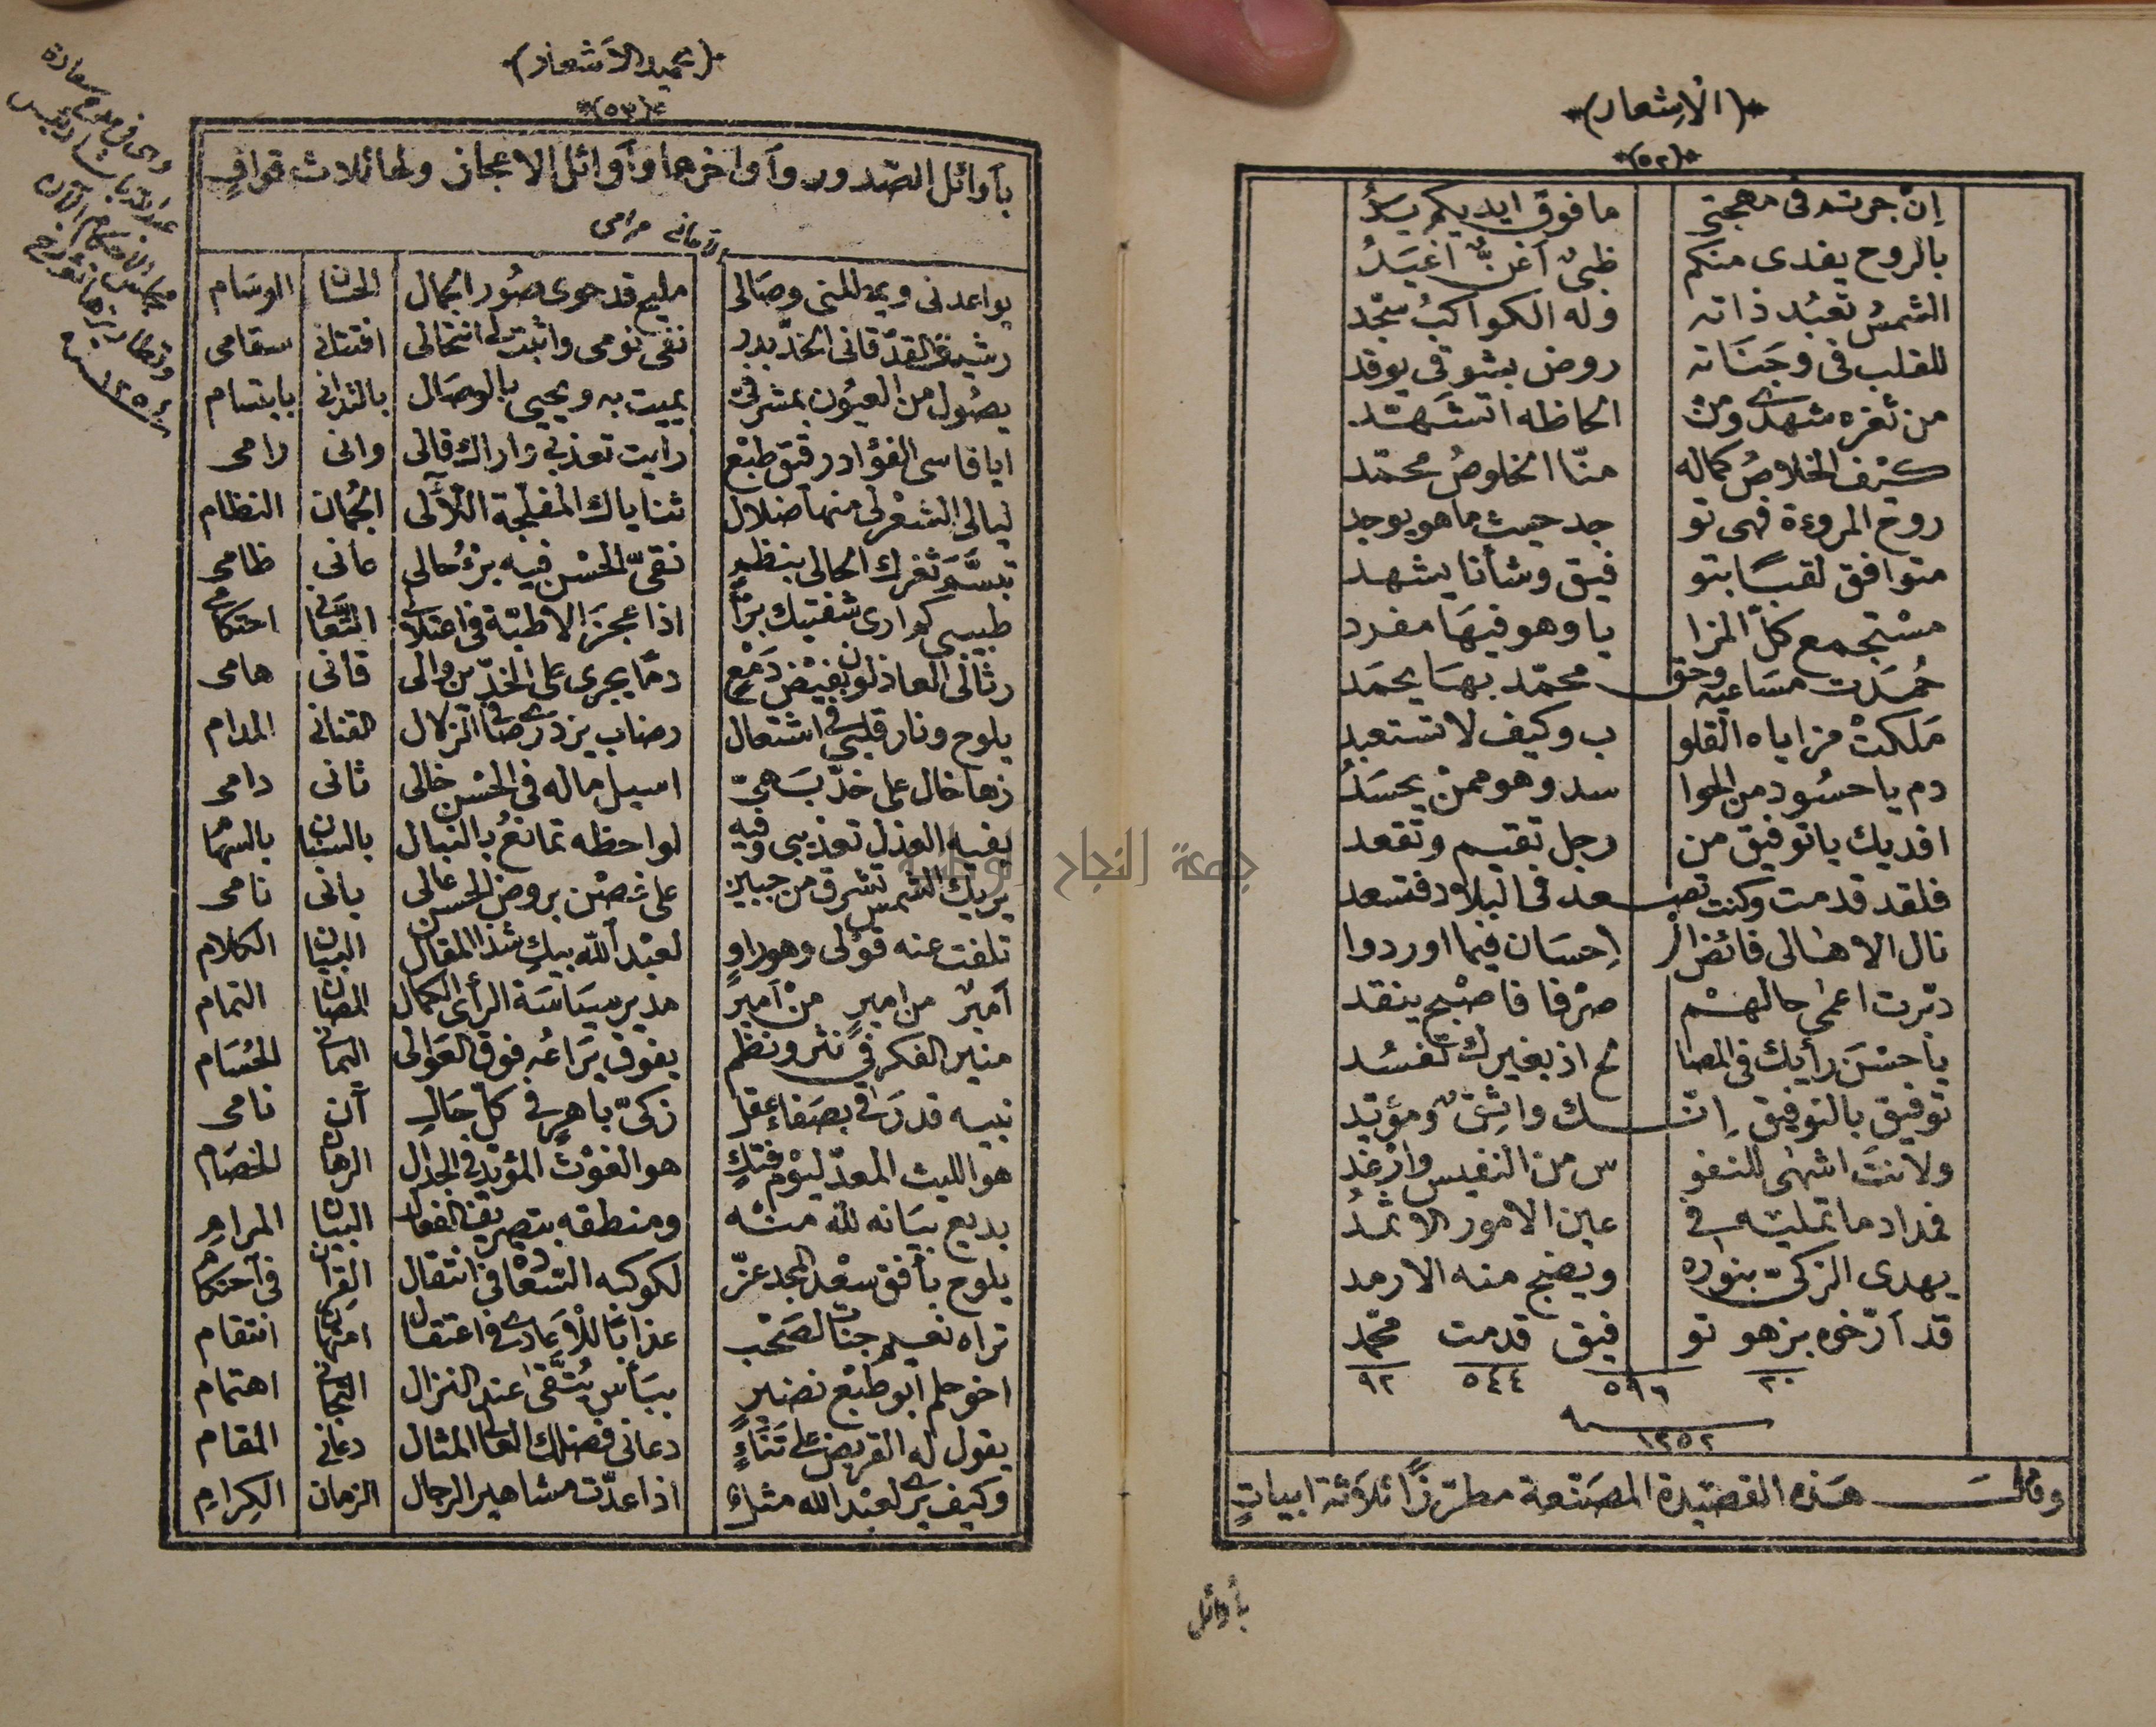 الاشعار
٥٢
إن جرتم في مهجتي ما فوق ايديكم يد
بالروح يفدى منكم ظبي أغنّ أغيد
الشمس تعبد ذاته وله الكواكب سجّد
للقلب في وجناته روض بشوقي يوقد
من ثغره شهدي ومن الحاظه اتشهّد
كيف الخلاص كماله منّا الخلوص محمّد
روح المروءة فهى تو جد حيث ما هو يوجد
متوافق لقبًا بتو فيق وشأنا يشهد
مستجمع كلّ المزا يا وهو فيها مفرد
حُمدت مساعيه وحق محمّد بها يحمد
ملكت مزاياه القلو ب وكيف لا تستعبد
دم يا حسود من الحوا سد وهو ممن يحسد
افديك يا توفيق من رجل تقيم وتقعد
فلقد قدمت وكنت تصعد في البلاد فتسعد
نال الاهالى فائض الإحسان فيما اوردوا
دبّرت اعمى حالهم صرفا فاصبح ينقد
يا حسن رأيك في المصا لح اذ بغيرك تفسد
توفيق بالتوفيق إنّك واثق ومؤيّد
ولأنت اشهى للنفو س من النفيس وأرغد
فمداد ما تمليه في عين الامور الاثمد
يهدى الزكيّ بنوره ويضج منه الارمد
قد أرّخوه بزهو تو فيق قدمت محمّد
٢٠ ٥٩٦ ٥٤٤ ٩٢
سنه ١٢٥٢
وقال هذه القصيدة المصنّعة مطرّزًا ثلاثة ابيات
بأوائل
الأشعار
٥٣
بأوائل الصّدور وأواخرها وأوائل الاعجاز ولها ثلاث قوافٍ
يواعدني ويمطلني وصالى مليح قد حوى صور الجمال الحسان الوسام
رشيق القدّ قاني الخدّ بدر نفى نومى واثبت لى انتحالى افتتاني سقامى
يصول من العيون بمشرفيّ يميت به ويحيي بالوصال بالتداني بابتسام
ايا قاسى الفؤاد رقيق طبع رأيت تعذبي واراك قالى وانى رامى
ليالى الشعر لى منها ضلال ثناياك المفلجة اللآلى الجمان النظام
تبسّم ثغرك الحالى بنظم نقيّ الحسن فيه برء حالى عاني ظامى
طبيبي كم ارى شفتيك برأ اذا عجز الاطبّة في اعتلالى
رثا لى العاذلون بفيض دمع دمًا يجرى على الخدّين والى قانى هامى
يلوح ونار قلبي في اشتعال رضاب يزدري صافي الزلال القناني المدام
زها خال على خدّ بهيّ اسيل ماله في الحسن خالى ثانى دامى
بفيه العذل تعذيبى وفيه لواحظه تمانع بالنبال بالسنان بالسهام
يريك الشمس تشرق من جبين على غصن بروض الحسن عالى بانى نامى
تلفت عنه قولى وهو راوٍ لعبد الله بيك شذا المقال البيان الكلام
أمير من امير من أمير مدير سياسة الرأى الكمال المصان التمام
منير الفكر في نثر ونظم يفوق يراعه فوق العوالى اليماني الحسام
نبيه قدر راقٍ بصفاء عقل زكىّ باهر في كلّ حال آن نامى
هو الليث المعدّ ليوم فتك هو الغوث المؤيّد في الجدال الرهان الخصام
بديع بيانه لله منه ومنطقه بتصريف المقال البيان المرام
يلوح بأفق سعد المجد عزّ لكوكبه السعادة في انتقال القران في احتكام
تراه نعيم جنّات لصحب عذابًا للأعادي في اعتقال امتهان انتقام
اخو حلم أبو طبع نضير ببأس يُتّقى عند النزال اهتمام
يقول له القريض على تناءٍ دعانى فضلك العالى المثال دعاني المقام
وكيف يرى لعبد الله مثل اذا عدّت مشاهير الرجال الزمان الكرام
جمعة النجاح